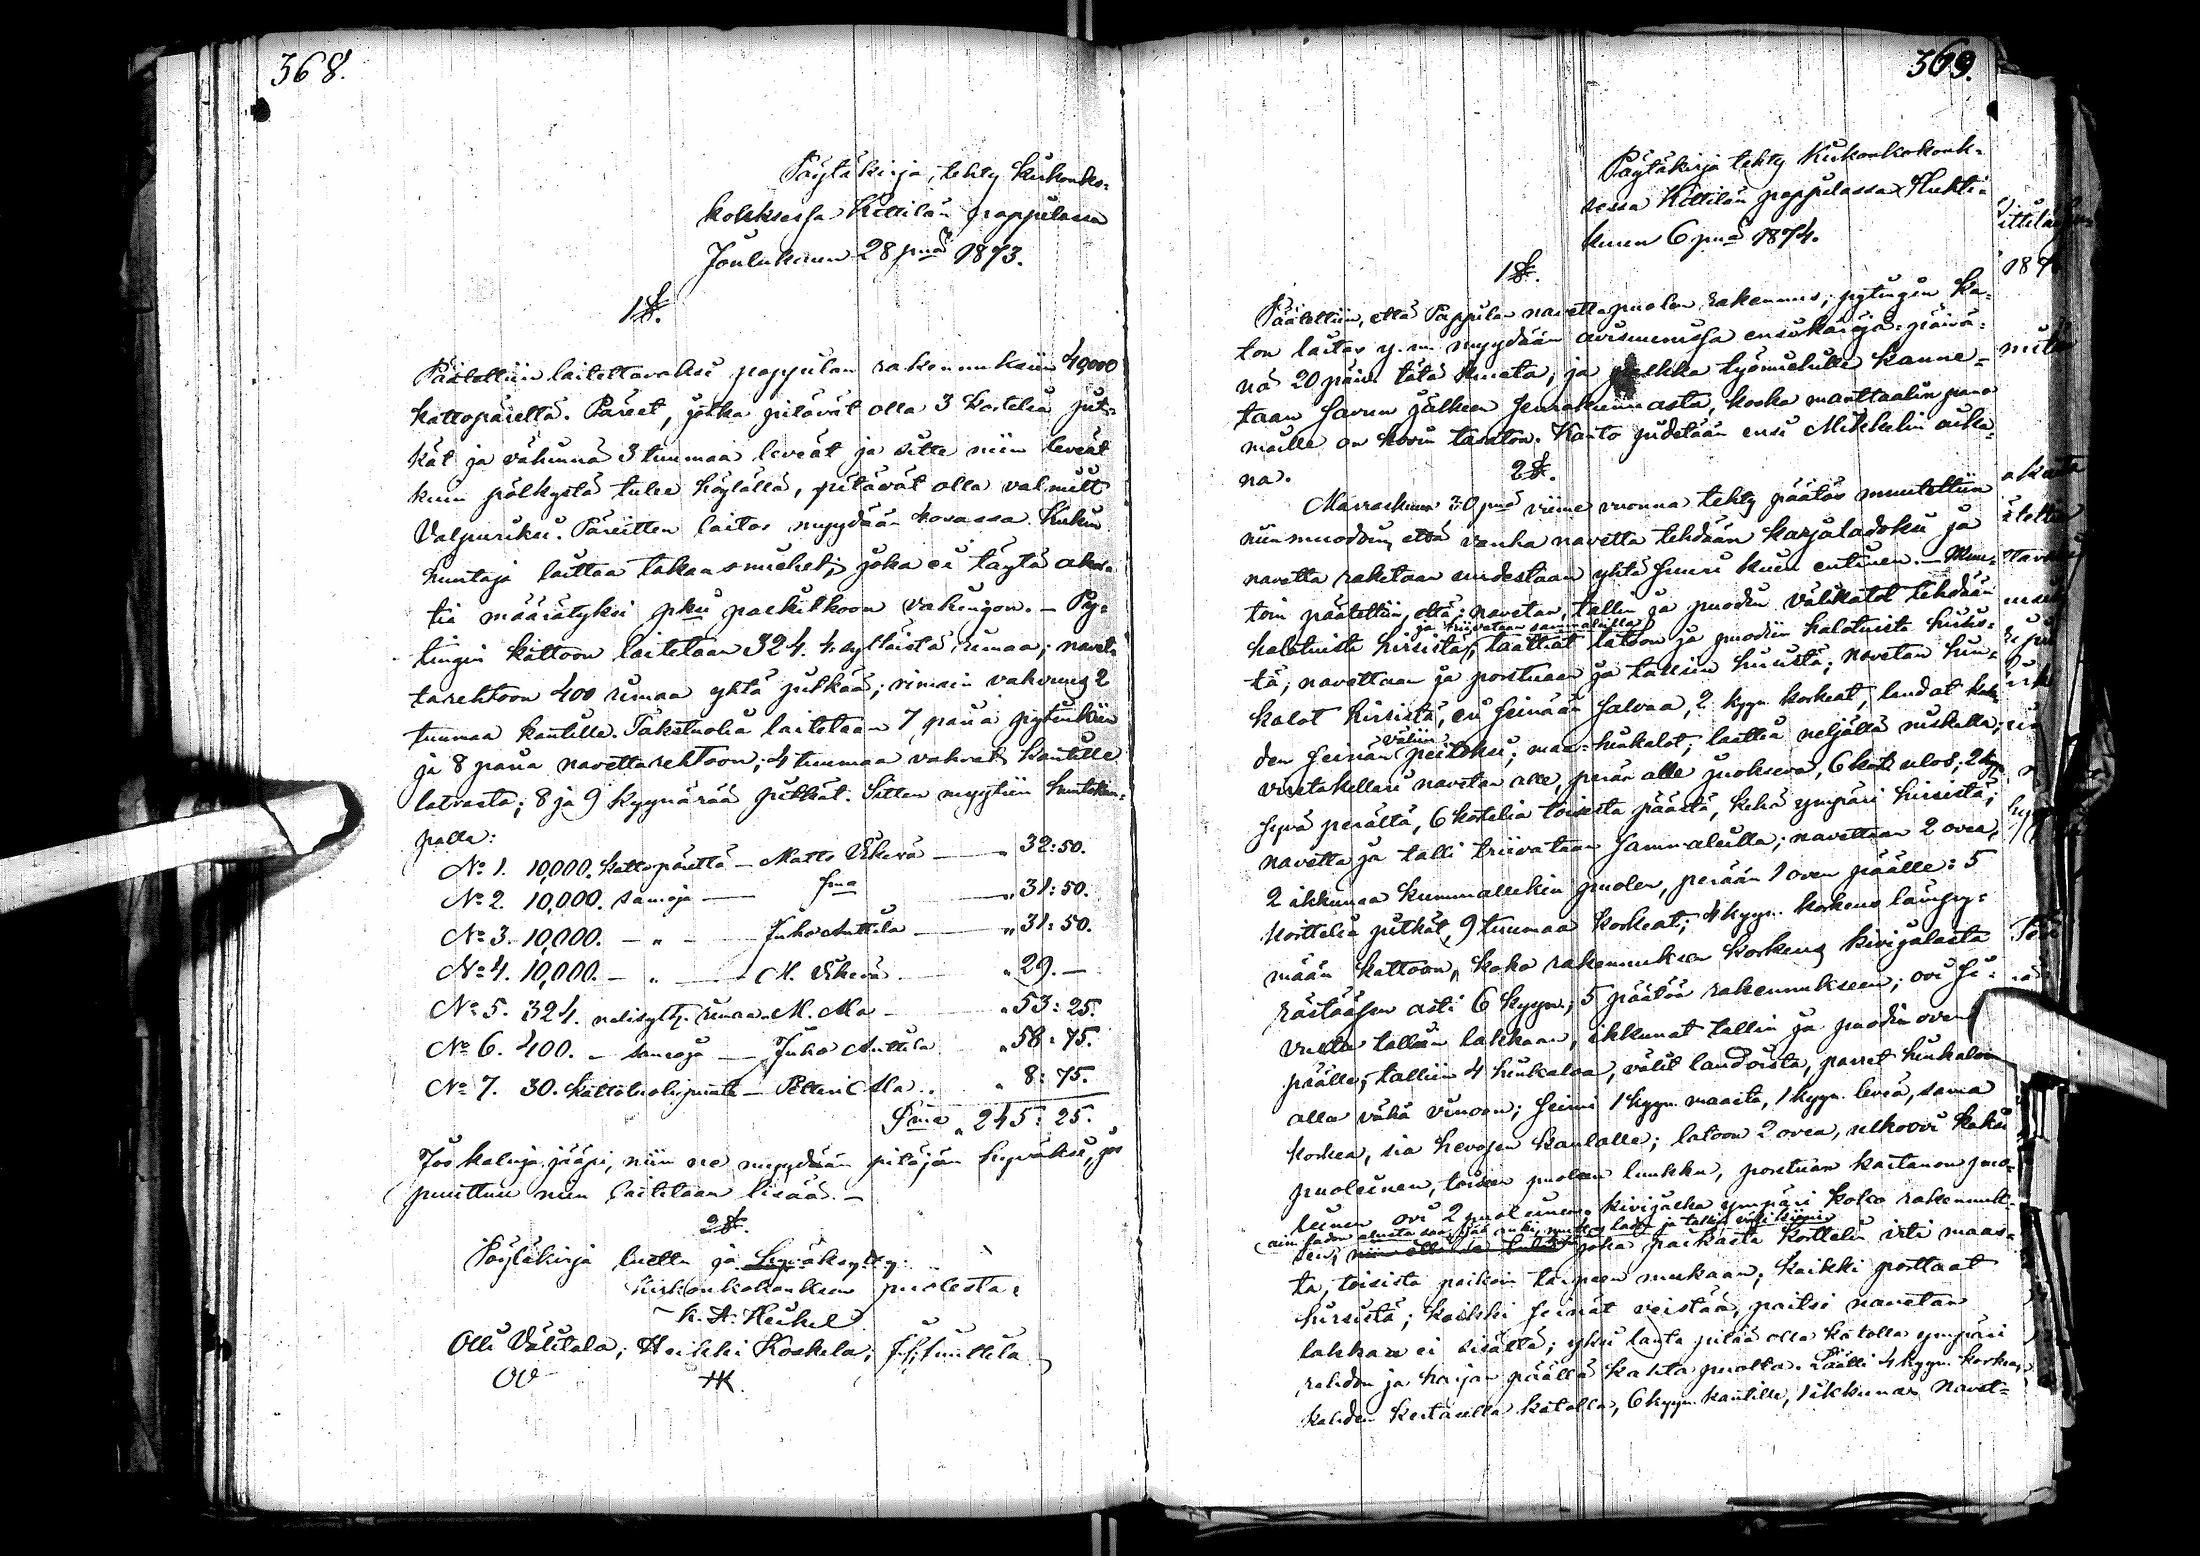 368.
Pöytäkirja, tehty kirkonko-
kouksessa Kittilän pappilassa
Joulukuun 28 pnä 1873.
1 §.
Päätettiin laitettavaksi pappilan rakennuksiin 40,000
kattopäreltä. Päreet, jotka pitävät olla 3 kortelia pit-
kät ja vähinnä 3 tuumaa leveät ja sitte niin leveät
kuin pölkystä tulee höylällä, pitävät olla valmiit
Valpuriksi. Päreitten laitos myydään kovassa. Kukin
huutaja laittaa takausmiehet, joka ei täytä akor-
tia määrätyksi pksi palkitkoon vahingon. — Py-
tingin kattoon laitetaan 324. 4 syltäistä rimaa; navet-
tarehtoon 400 rimaa yhtä pitkää; rimain vahvuus 2
tuumaa kantille. Takstuolia laitetaan 7 paria pytinkiin
ja 8 paria navettarehtoon; 4 tuumaa vahvat kantille
latvasta; 8 ja 9 kyynärää pitkät. Sitten myytiin huutokau-
palla:
No 1. 10,000. kattopärettä — Matts Vikevä — " 32:50.
No 2. 10,000. samoja — sma — " 31:50.
No 3. 10,000. — " — Juho Anttila — " 31:50.
No 4. 10,000. — " — M. Vikevä — " 29. —
No 5. 324. nelisylty. rimaa M. Ma — " 53:25.
No 6. 400. — samoja — Juho Anttila " 58:75.
No 7. 30. kattotuoliparia — Petteri Ala.. " 8:75.
Sma " 245:25.
Jos kaluja jääpi, niin ne myydään pitäjän hyväksi, jos
puuttuu niin laitetaan lisää. —
2 §.
Pöytäkirja luettu ja hyväksytty.
Kirkonkokouksen puolesta:
K. A. Heikel
Olli Välitalo; Heikki Koskela;
OV HK.
369.
Pöytäkirja tehty Kirkonkokouk-
sessa Kittilän pappilassa Huhti-
kuun 6 pnä 1874.
1 §.
Päätettiin, että Pappilan navettapuolen rakennus, pytingin ka-
ton laitos y. m. myydään ensi käräjä-päivä-
nä 20 päivä tätä kuuta, ja palkka työmiehille kanne-
taan savun jälkeen seurakunnasta, koska manttaalin pano
maille on kovin tasaton. Kanto pidetään ensi Mikkelin aika-
na.
2 §.
Marraskuun 30 pnä viime vuonna tehty päätös muutettiin
niinmuodoin, että vanha navetta tehdään karjaladoksi ja
navetta raketaan uudestaan yhtä suuri kuin entinen. — Muu-
toin päätettiin, että: navetan, tallin ja puodin välikatot tehdään
ja triivataan sammaleilla
halotuista hirsistä; laattiat latoon ja puodiin halotuista hirsis-
tä; navettaan ja porstuaan ja talliin hirsistä; navetan hin-
kalot hirsistä, eri seinään salvaa, 2 kyyn. korkeat, laudat kah-
väliin
den seinän peitoksi; maa-hinkalot; laattia neljällä niskalla;
virtakellari navetan alle, perän alle juokseva, 6 kort. ulos, 2 kyyn
syvä perältä, 6 kortelia toisesta päästä, kehä ympäri hirsistä;
navetta ja talli triivataan sammaleilla; navettaan 2 ovea,
2 ikkunaa kummallekin puolen, perään 1 oven päälle: 5
korttelia pitkät, 9 tuumaa korkeat; 4 kyyn. korkeus lämpy-
mään kattoon, koko rakennuksen korkeus kivijalasta
rästääseen asti 6 kyyn; 5 päätöä rakennukseen; ovi
tallin lakkaan, ikkunat tallin ja puodin oven
päälle; talliin 4 hinkaloa, välit laudoista, parret hinkaloin
alla vähä vinoon; seimi 1 kyyn. maasta, 1 kyyn. leveä, sama
korkea, sia hevosen kaulalle; latoon 2 ovea, ulkoovi kaksi
puoleinen, toisen puolen luukku, porstuan kartanon puo-
leinen ovi 2 puoleinen. kivijalka ympäri koko rakennuk-
sen; joka paikasta korttelin irti maas-
ta, toisista paikoin tarpeen mukaan; kaikki porttaat
hirsistä; kaikki seinät veistään, paitsi navetan
lakkaa ei sisältä; yksi lauta pitää olla katolla ympäri
rehdon ja harjan päällä kahta puolta. Läätti 4 kyyn. korkea,
kahden kertasella katolla, 6 kyyn. kantille, 1 ikkuna. Navet-